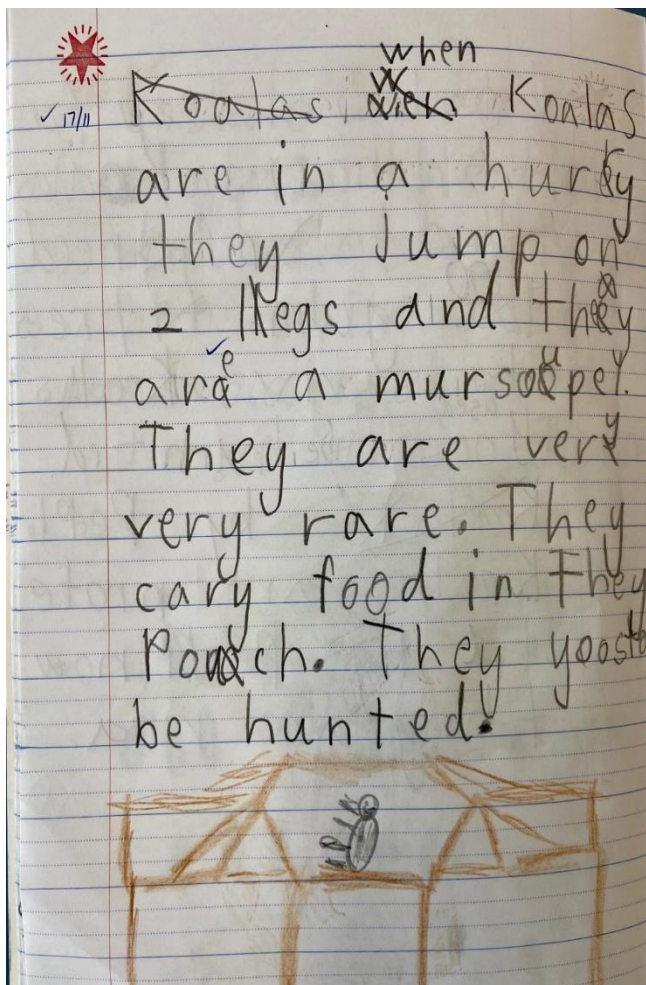 when
Koalas when Koalas
✓ 17/11
are in a hurry
they Jump on
2 legs and they
are a mursoupel.
They are very
very rare. They
cary food in They
Pouch. They yoosto
be hunted.